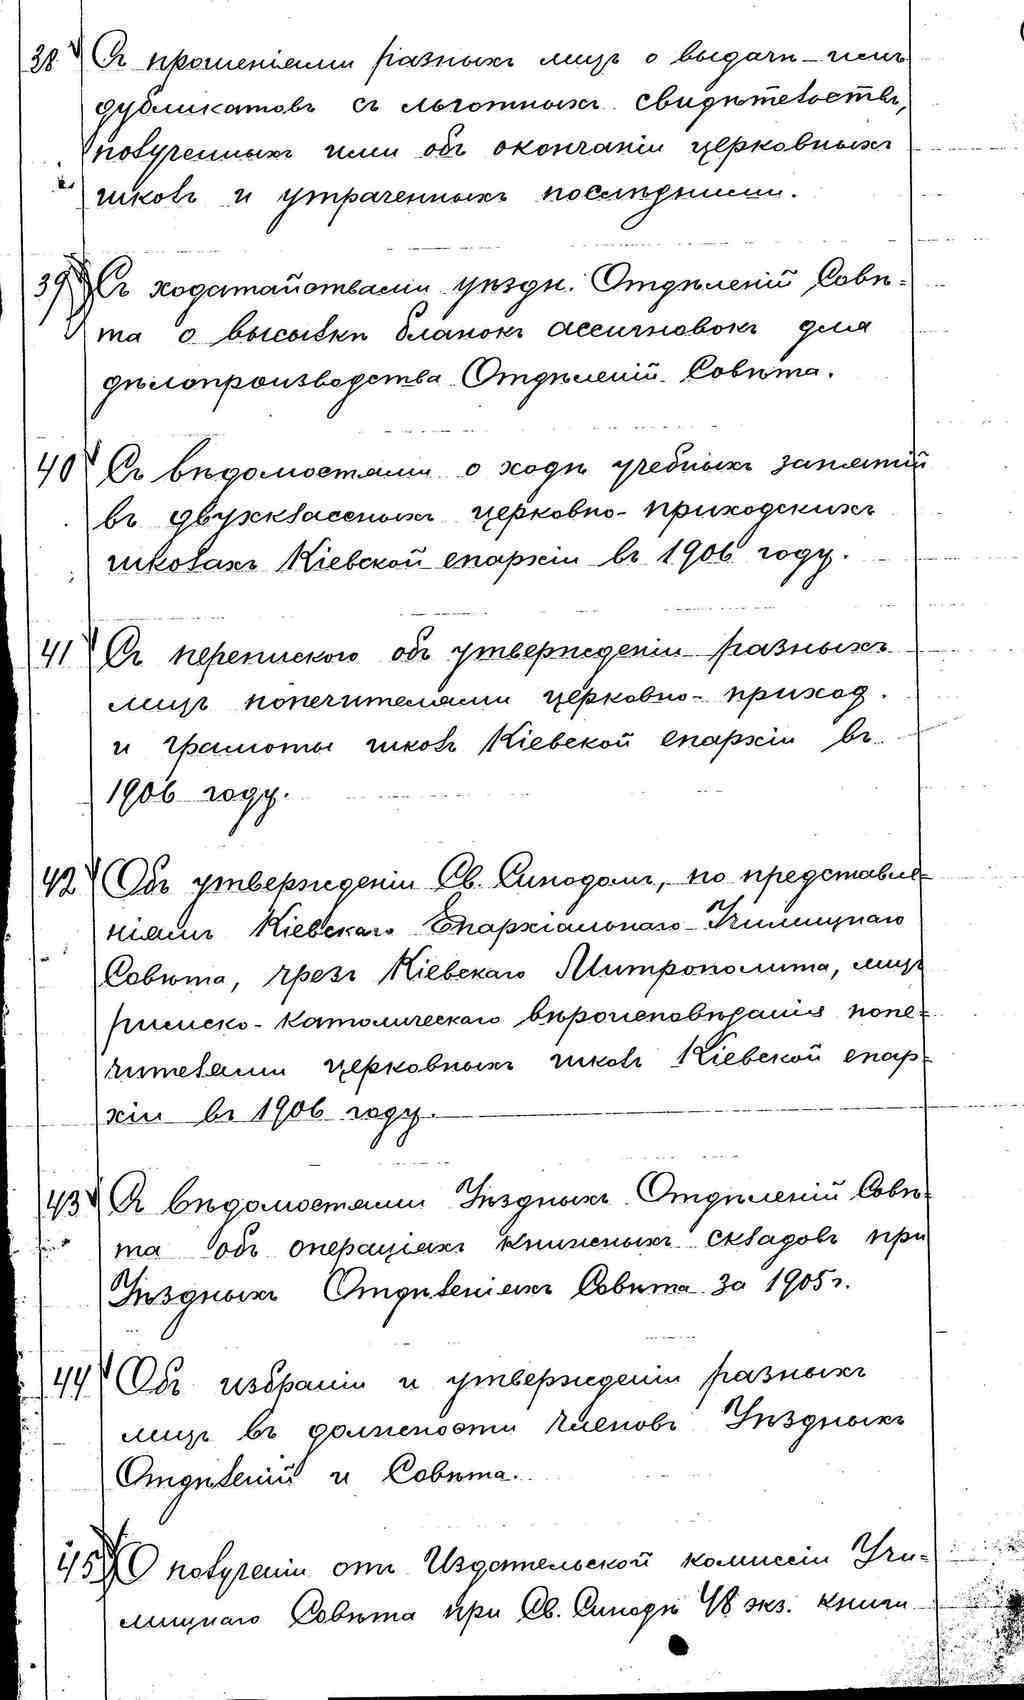 38 Съ прошеніями разныхъ лицъ о выдачѣ имъ
дубликатовъ съ льготныхъ свидѣтельствъ,
полученныхъ ими объ окончаніи церковныхъ
школъ и утраченныхъ послѣдними.
39 Съ ходатайствами уѣздн. Отдѣленій Совѣ-
та о высылкѣ бланокъ ассигновокъ для
дѣлопроизводства Отдѣленій Совѣта.
40 Съ вѣдомостями о ходѣ учебныхъ занятій
въ двухклассныхъ церковно-приходскихъ
школахъ Кіевской епархіи въ 1906 году.
41 Съ перепиской объ утвержденіи разныхъ
лицъ попечителями церковно-приход.
и грамоты школъ Кіевской епархіи въ
1906 году.
42 Объ утвержденіи Св. Синодомъ, по представле-
ніямъ Кіевскаго Епархіальнаго Училищнаго
Совѣта, чрезъ Кіевскаго Митрополита, лицъ
римско-католическаго вѣроисповѣданія попе-
чителями церковныхъ школъ Кіевской епар-
хіи въ 1906 году.
43 Съ вѣдомостями Уѣздныхъ Отдѣленій Совѣ-
та объ операціяхъ книжныхъ складовъ при
Уѣздныхъ Отдѣленіяхъ Совѣта за 1905 г.
44 Объ избраніи и утвержденіи разныхъ
лицъ въ должности членовъ Уѣздныхъ
Отдѣленій и Совѣта.
45 О полученіи отъ Издательской комиссіи Учи-
лищнаго Совѣта при Св. Синодѣ 48 экз. книги